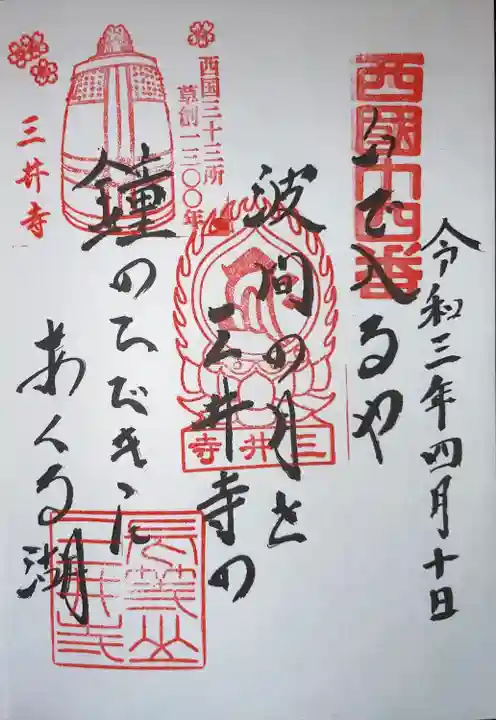 西國十四番
令和三年四月十日
いで入るや
波間の月を
三井寺の
鐘のひびきに
あくる湖
西国三十三所
草創一三〇〇年
三井寺
三井寺